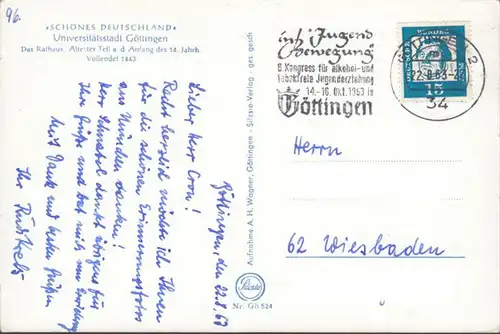 96.
»SCHÖNES DEUTSCHLAND«
Universitätsstadt Göttingen
Das Rathaus. Ältester Teil a. d. Anfang des 14. Jahrh.
Vollendet 1443
Göttingen, den 22.8.63
Lieber Herr Cron!
Recht herzlich möchte ich Ihnen
für die schönen Erinnerungsfotos
aus Münden danken!
Herr Schnabel dankt übrigens für
Ihre Grüße und bat mich um
Mit Dank und besten Grüßen
Ihr
Aufnahme A. H. Wagner, Göttingen - Stesse-Verlag - ges. gesch.
Nr. Gö 524
"Jugend
Bewegung"
Kongress für alkohol- und
tabakfreie Jugenderziehung
14.-16. Okt. 1963 in
Göttingen
GÖTTINGEN 2
22.8.63
34
15
Herrn
62 Wiesbaden